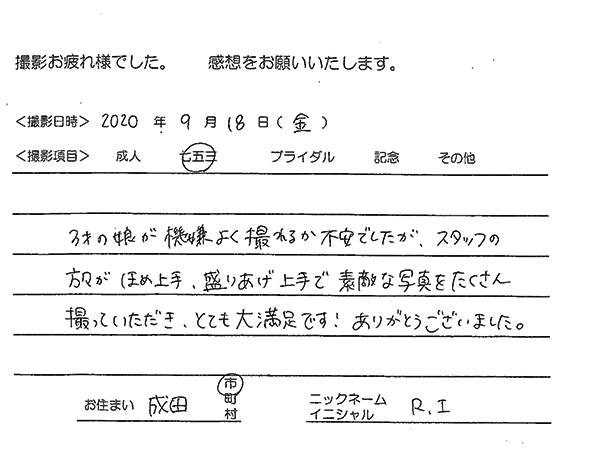 撮影お疲れ様でした。 感想をお願いいたします。
<撮影日時> 2020 年 9 月 18 日 ( 金 )
<撮影項目> 成人 七五三 ブライダル 記念 その他
3才の娘が機嫌よく撮れるか不安でしたが、スタッフの
方々がほめ上手、盛りあげ上手で素敵な写真をたくさん
撮っていただき、とても大満足です! ありがとうございました。
お住まい 成田 市 町 村 ニックネーム イニシャル R.I